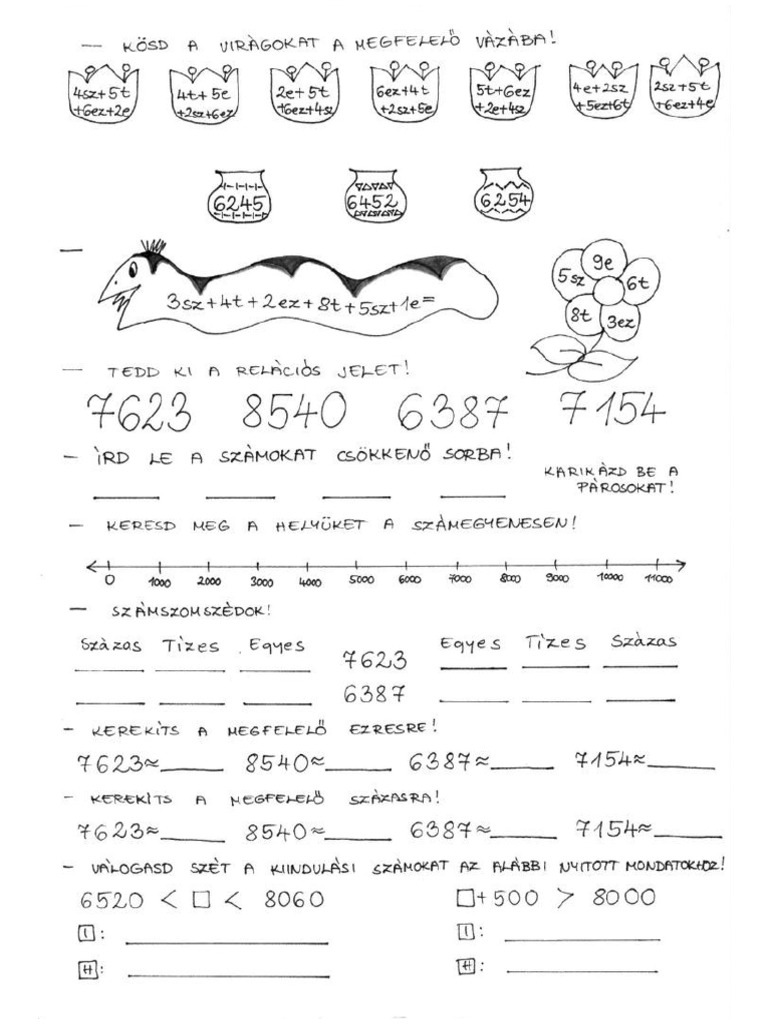 — KÖSD A VIRÁGOKAT A MEGFELELŐ VÁZÁBA!
4sz+5t +6ez+2e
4t+5e +2sz+6ez
2e+5t +6ez+4sz
6ez+4t +2sz+5e
5t+6ez +2e+4sz
4e+2sz +5ez+6t
2sz+5t +6ez+4e
6245 6452 6254
—
3sz+4t+2ez+8t+5sz+1e=
9e
5sz 6t
8t 3ez
— TEDD KI A RELÁCIÓS JELET!
7623 8540 6387 7154
— ÍRD LE A SZÁMOKAT CSÖKKENŐ SORBA!
KARIKÁZD BE A
PÁROSOKAT!
— KERESD MEG A HELYÜKET A SZÁMEGYENESEN!
0 1000 2000 3000 4000 5000 6000 7000 8000 9000 10000 11000
— SZÁMSZOMSZÉDOK!
Százas Tízes Egyes Egyes Tízes Százas
7623
6387
— KEREKÍTS A MEGFELELŐ EZRESRE!
7623≈ 8540≈ 6387≈ 7154≈
— KEREKÍTS A MEGFELELŐ SZÁZASRA!
7623≈ 8540≈ 6387≈ 7154≈
— VÁLOGASD SZÉT A KIINDULÁSI SZÁMOKAT AZ ALÁBBI NYITOTT MONDATOKHOZ!
6520 < □ < 8060 □+500 > 8000
I: I:
H: H: